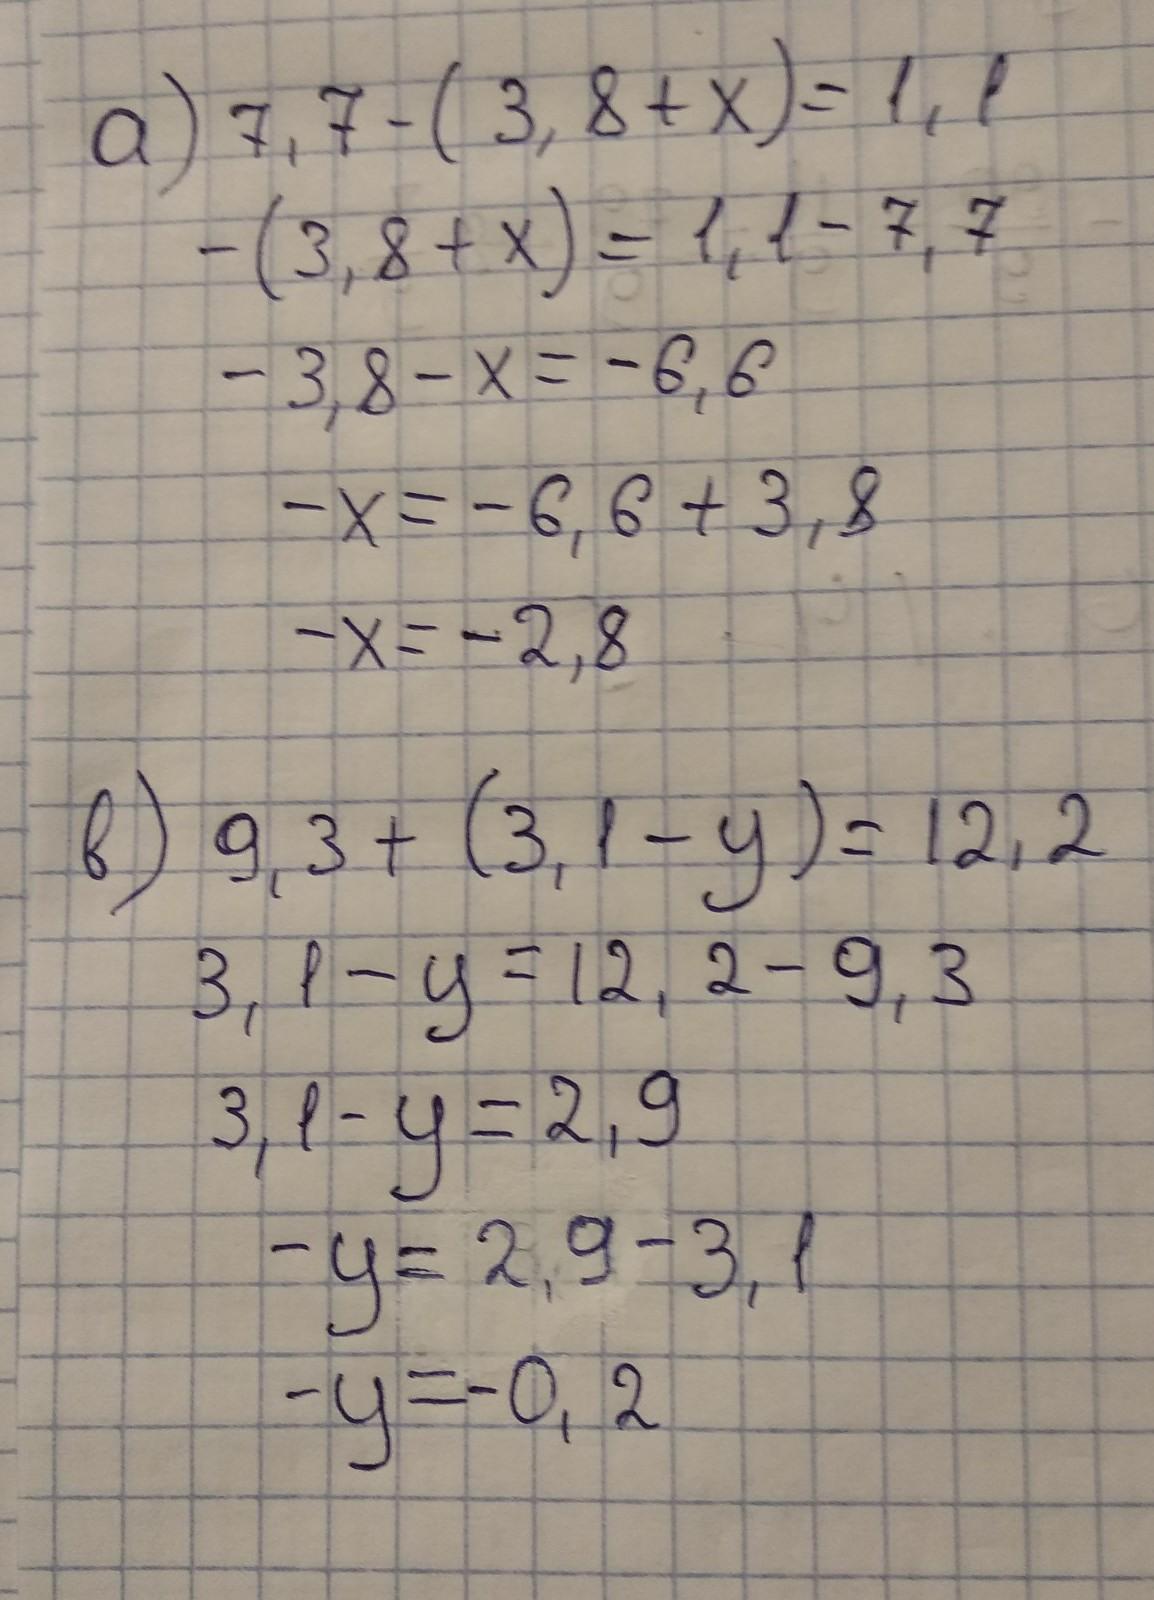 а) 7,7-(3,8+x)=1,1
-(3,8+x)=1,1-7,7
-3,8-x=-6,6
-x=-6,6+3,8
-x=-2,8
в) 9,3+(3,1-y)=12,2
3,1-y=12,2-9,3
3,1-y=2,9
-y=2,9-3,1
-y=-0,2